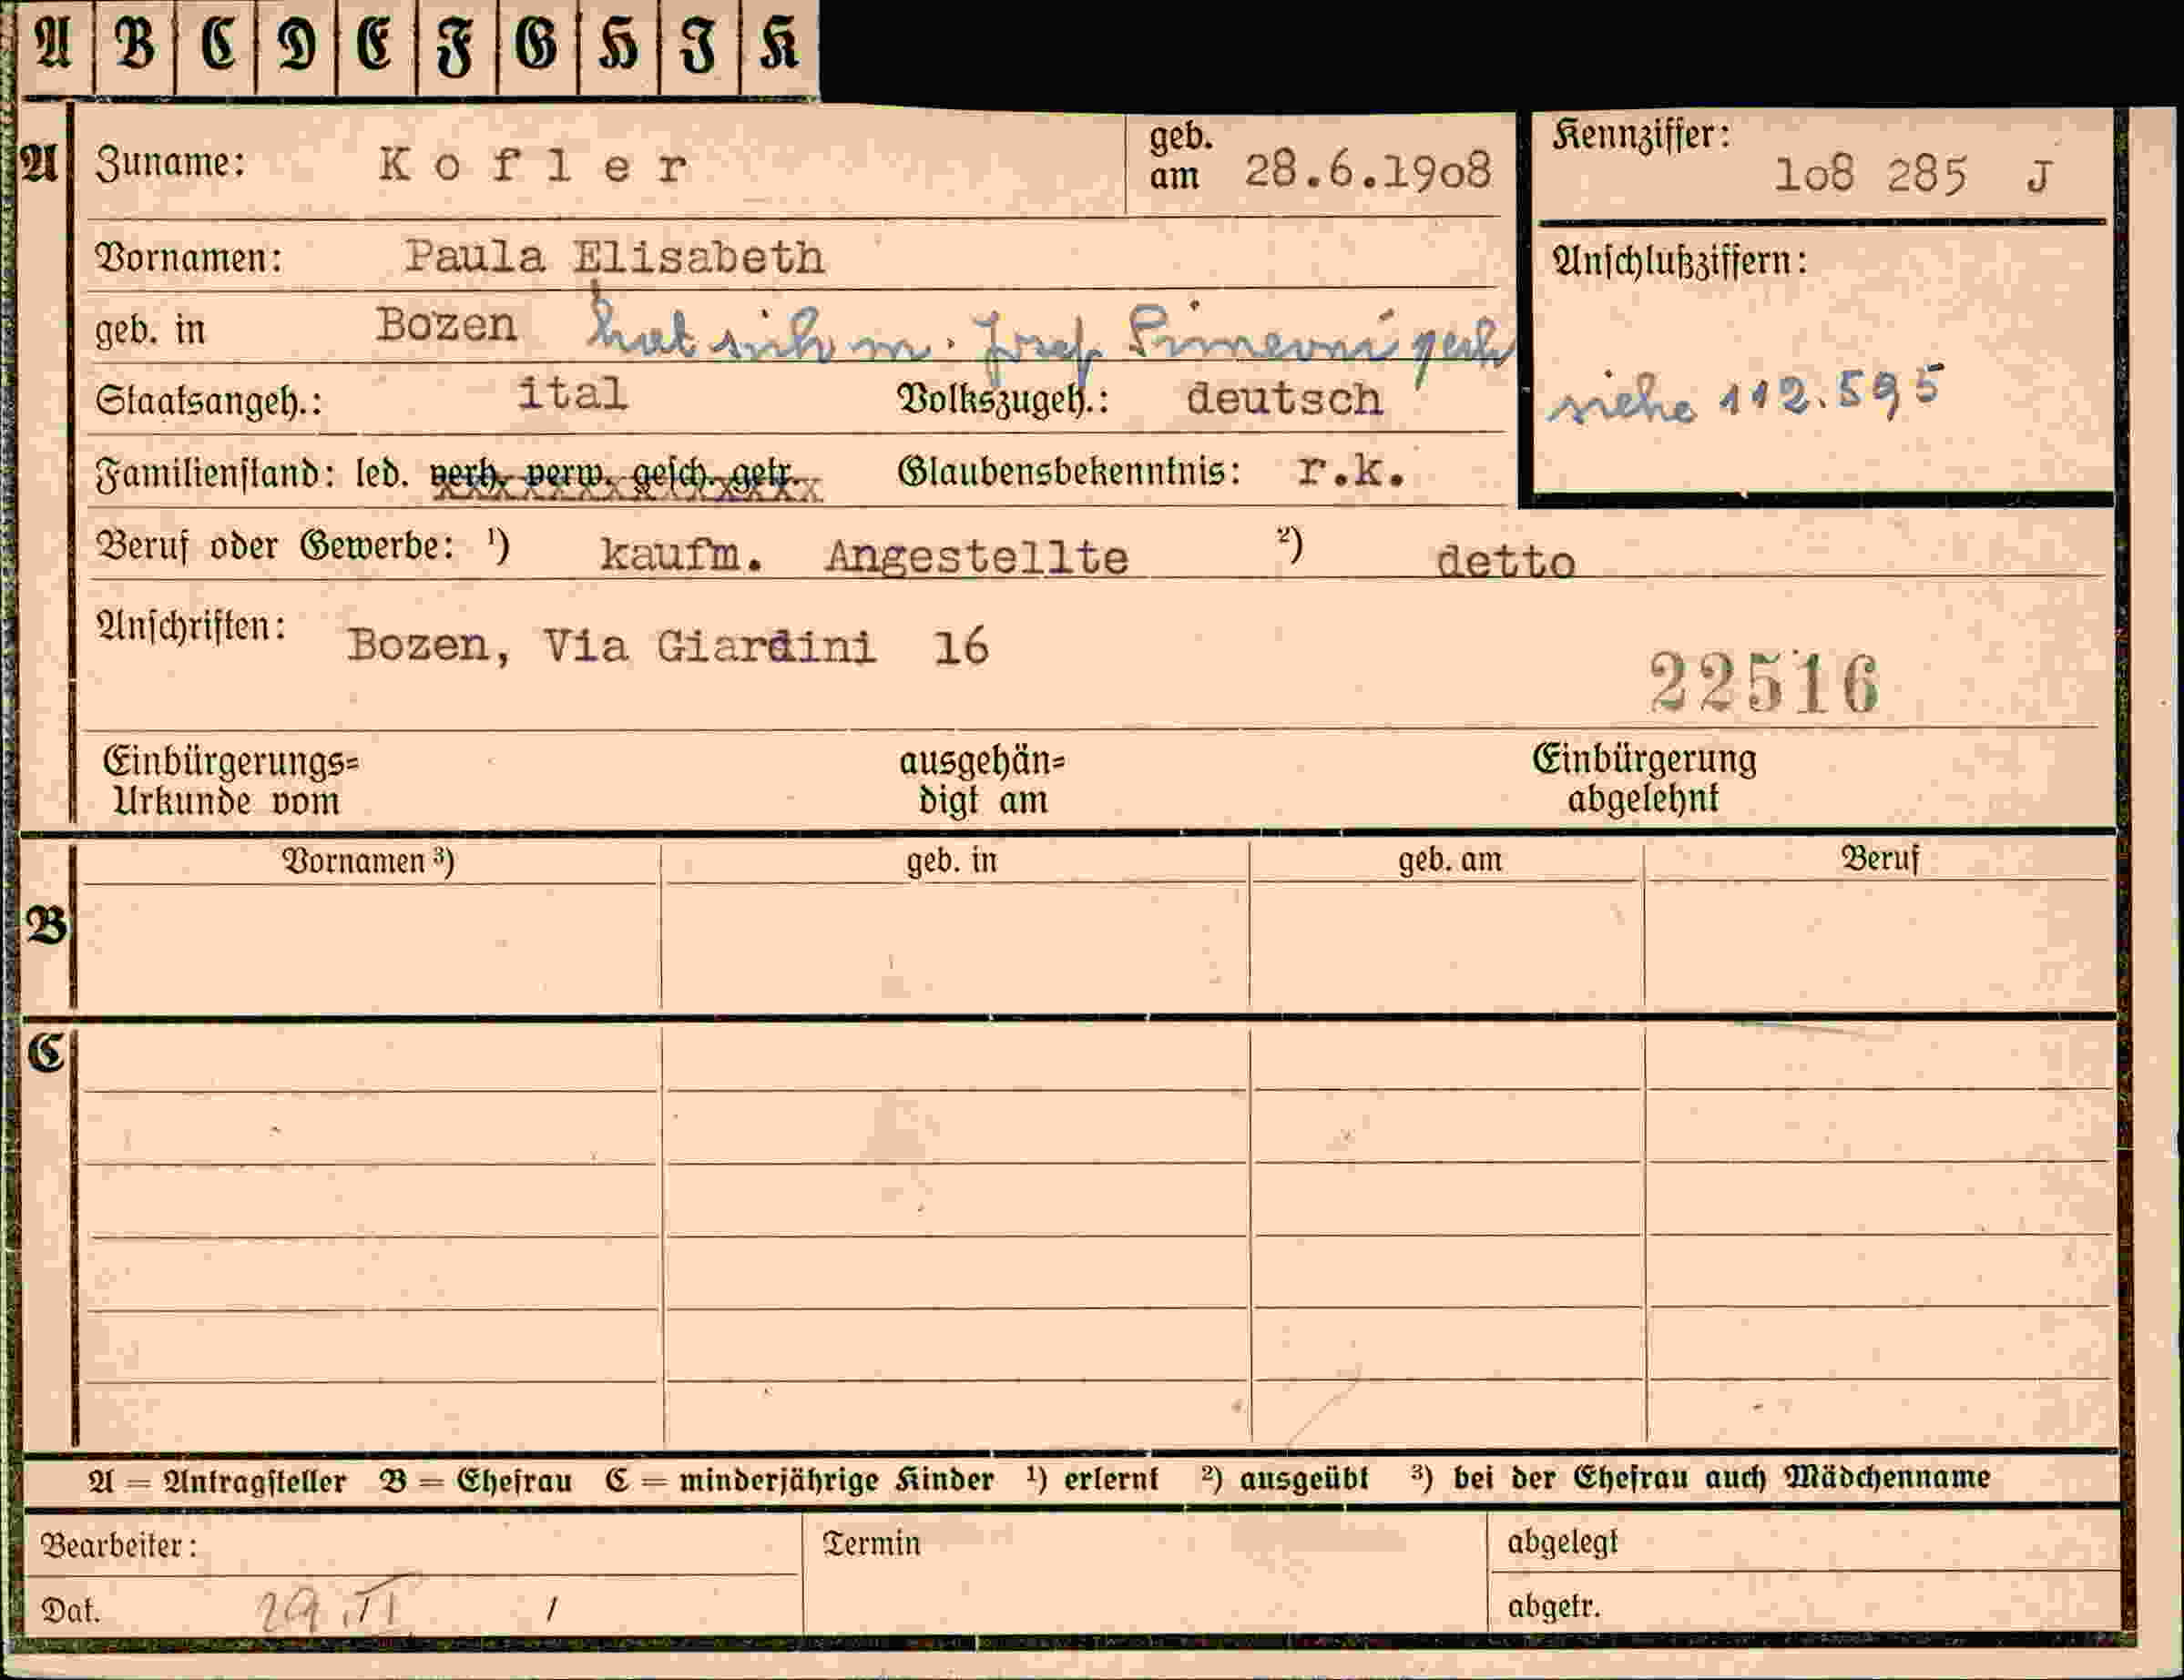 A B C D E F G H I K
A Zuname: Kofler geb. am 28.6.1908 Kennziffer: 108 285 J
Vornamen: Paula Elisabeth Anschlußziffern:
geb. in Bozen hat sich m. Josef
Staatsangeh.: ital Volkszugeh.: deutsch siehe 112.595
Familienstand: led. verh. verw. gesch. getr. Glaubensbekenntnis: r.k.
Beruf oder Gewerbe: ¹) kaufm. Angestellte ²) detto
Anschriften: Bozen, Via Giardini 16
22516
Einbürgerungs= ausgehän= Einbürgerung
Urkunde vom digt am abgelehnt
Vornamen ³) geb. in geb. am Beruf
B
C
A = Antragsteller B = Ehefrau C = minderjährige Kinder ¹) erlernt ²) ausgeübt ³) bei der Ehefrau auch Mädchenname
Bearbeiter: Termin abgelegt
Dat. 29.II / abgetr.